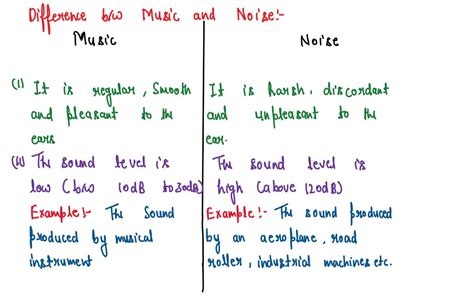 Difference b/w Music and Noise:-
Music
Noise
(i) It is regular, Smooth
and pleasant to the
ears
It is harsh, discordant
and unpleasant to the
ear.
(ii) The sound level is
low (b/w 10dB to 30dB)
Example:- The Sound
produced by musical
instrument
The sound level is
high (above 120dB)
Example:- The sound produced
by an aeroplane, road
roller, industrial machines etc.